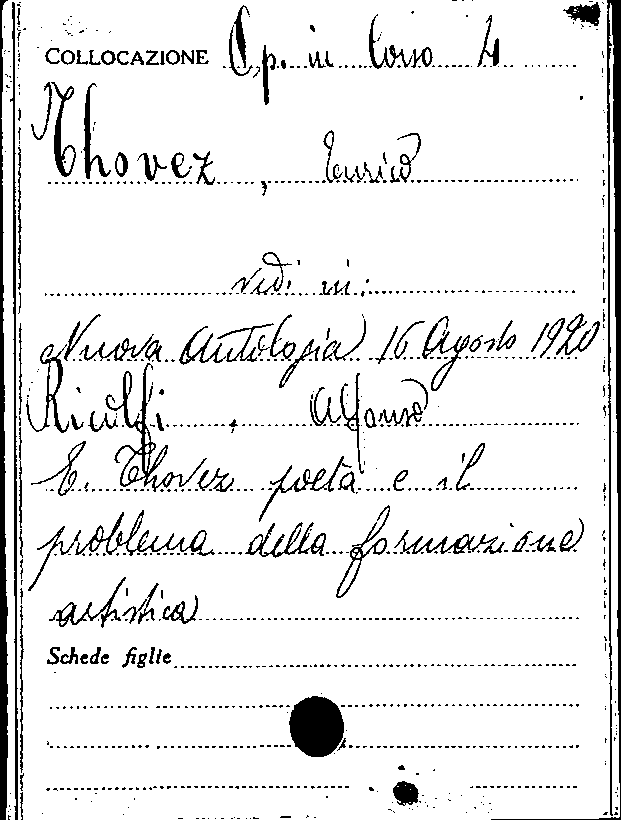 COLLOCAZIONE Op. in Corso 4
Thovez, Enrico
vedi in:
Nuova Antologia 16 Agosto 1920
Ricolfi, Alfonso
E. Thovez poeta e il
problema della formazione
artistica
Schede figlie